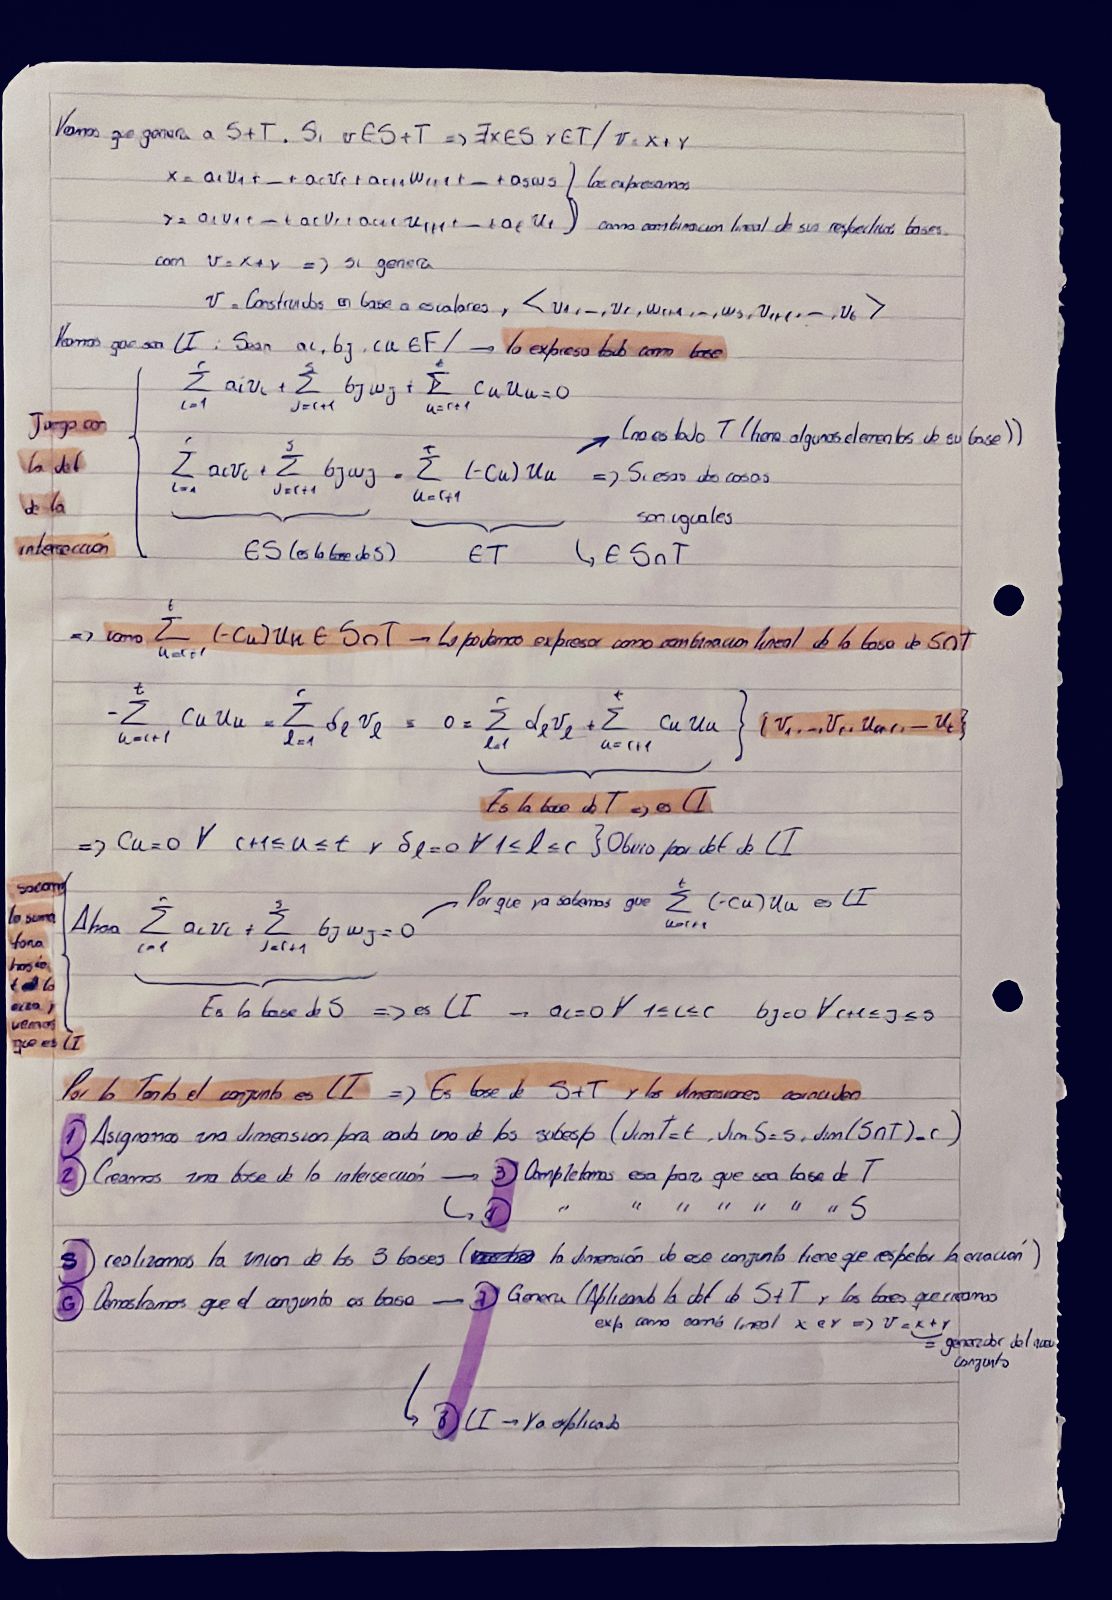 Veamos que genera a S+T. Si v∈S+T => ∃x∈S y∈T/ v=x+y
x= a₁v₁+ _ +aᵣvᵣ+aᵣ₊₁wᵣ₊₁+ _ +asws } Los expresamos
y= a₁v₁+ _ +aᵣvᵣ+aᵣ₊₁uᵣ₊₁+ _ +aₜuₜ } como combinacion lineal de sus respectivas bases.
com v=x+y => si genera
v = Construidos en base a escalares, <v₁,_,vᵣ,wᵣ₊₁,_,ws,vᵣ₊₁,_,vₜ>
Veamos que son LI: Sean ai, bj, cu ∈F/ → lo expreso todo como base
∑ᵢ₌₁ʳ aivi + ∑ⱼ₌ᵣ₊₁ˢ bjwj + ∑ᵤ₌ᵣ₊₁ᵗ cuuu=0
Juego con la def de la intersección
(no es todo T (tiene algunos elementos de su base))
∑ᵢ₌₁ʳ aivi + ∑ⱼ₌ᵣ₊₁ˢ bjwj = ∑ᵤ₌ᵣ₊₁ᵗ (-cu)uu => Si esas dos cosas
son iguales
∈S (es la base de S) ∈T ↳ ∈ S∩T
=> como ∑ᵤ₌ᵣ₊₁ᵗ (-cu)uu ∈ S∩T → Lo podemos expresar como combinacion lineal de la base de S∩T
-∑ᵤ₌ᵣ₊₁ᵗ cuuu = ∑ₗ₌₁ʳ δₗvₗ = 0= ∑ₗ₌₁ʳ δₗvₗ + ∑ᵤ₌ᵣ₊₁ᵗ cuuu } {v₁,_,vᵣ,uᵣ₊₁,_uₜ}
Es la base de T => es LI
=> cu=0 ∀ r+1≤u≤t y δₗ=0 ∀ 1≤l≤r } Obvio por def de LI
Porque ya sabemos que ∑ᵤ₌ᵣ₊₁ᵗ (-cu)uu es LI
Ahora ∑ᵢ₌₁ʳ aivi + ∑ⱼ₌ᵣ₊₁ˢ bjwj=0
la suma
y vemos
que es LI
Es la base de S => es LI → ai=0 ∀ 1≤i≤r bj=0 ∀ r+1≤j≤s
Por lo Tanto el conjunto es LI => Es base de S+T y las dimensiones coinciden
1) Asignamos una dimension para cada uno de los subesp (dim T=t, dim S=s, dim(S∩T)=r)
2) Creamos una base de la intersección → 3) Completamos esa para que sea base de T
↳ 4) " " " " " " " S
5) realizamos la union de las 3 bases (la dimensión de ese conjunto tiene que respetar la ecuación)
6) Demostramos que el conjunto es base → 7) Genera (Aplicando la def de S+T y las bases que creamos
exp como comb lineal x e y => v=x+y
= generador del
conjunto
↳ 8) LI → Ya explicado